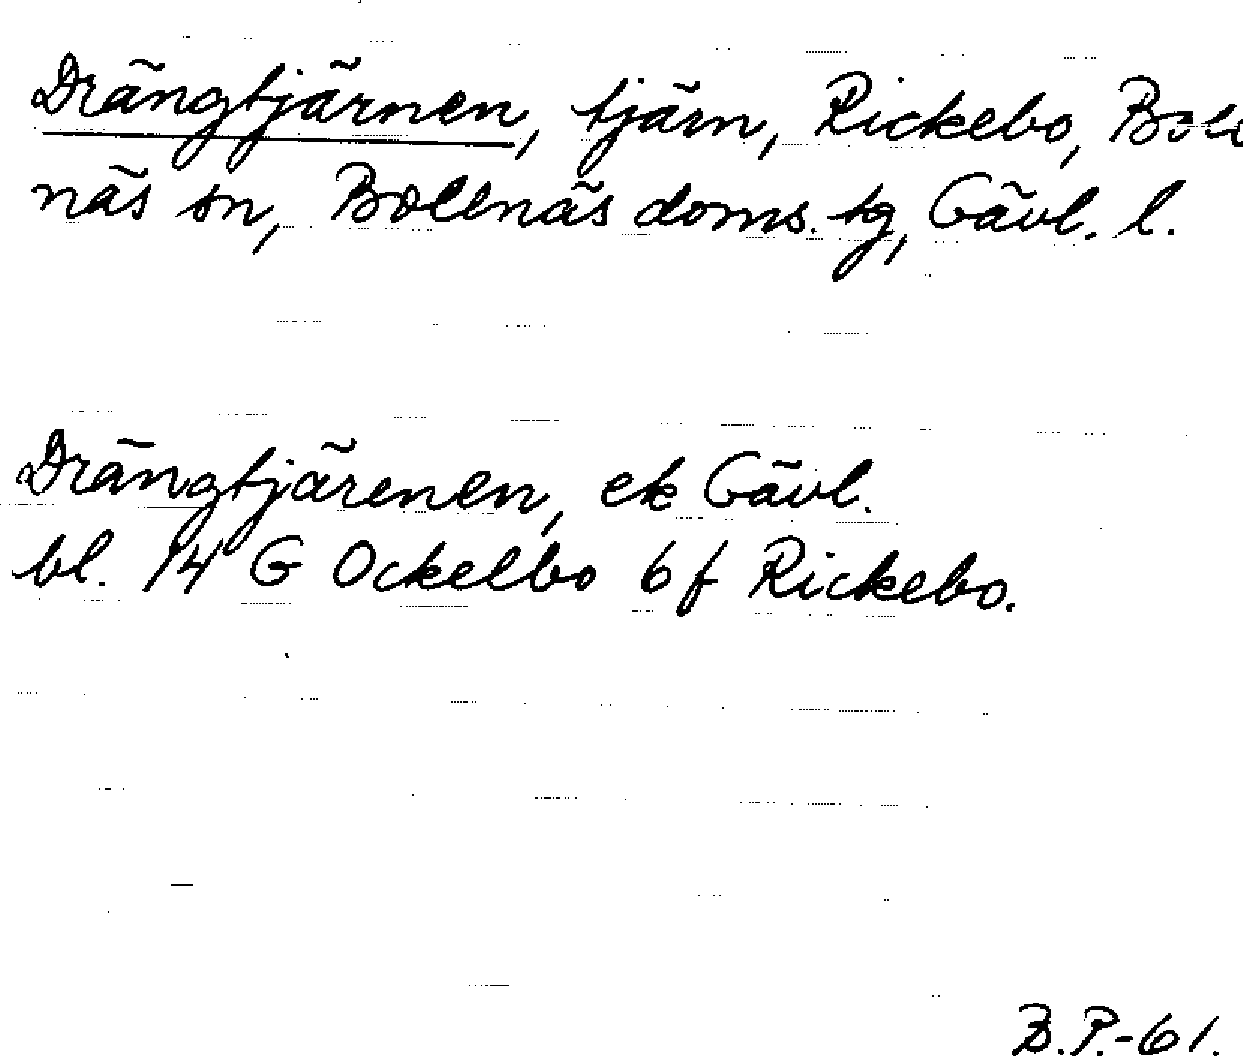 Drängtjärnen, tjärn, Rickebo, Boll
näs sn, Bollnäs doms. tg, Gävl. l.
Drängtjärenen, ek Gävl.
bl. 14 G Ockelbo 6 f Rickebo.
B.P.-61.